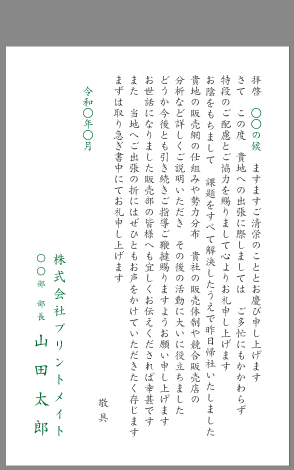 拝啓　〇〇の候　ますますご清栄のこととお慶び申し上げます
さて　この度　貴地への出張に際しましては　ご多忙にもかかわらず
特段のご配慮とご協力を賜りまして心よりお礼申し上げます
お陰をもちまして　課題をすべて解決したうえで昨日帰社いたしました
貴地の販売網の仕組みや勢力分布　貴社の販売体制や競合販売店の
分析など詳しくご説明いただき　その後の活動に大いに役立ちました
どうか今後とも引き続きご指導ご鞭撻賜りますようお願い申し上げます
お世話になりました販売部の皆様へも宜しくお伝えくだされば幸甚です
また　当地へご出張の折にはぜひともお声をかけていただきたく存じます
まずは取り急ぎ書中にてお礼申し上げます
敬具
令和〇年〇月
株式会社プリントメイト
〇〇部 部長　山田太郎